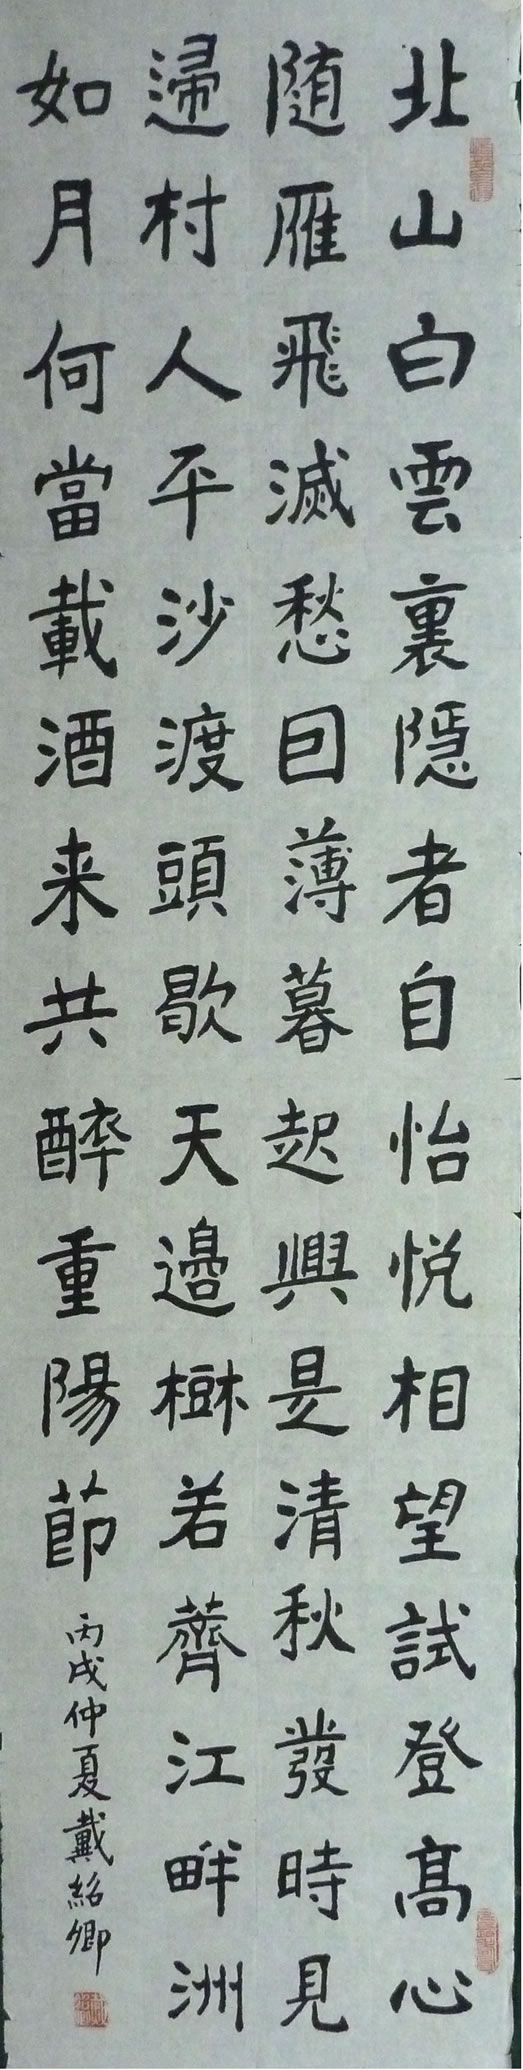 北山白雲裏隱者自怡悅相望試登髙心
随雁飛滅愁囙薄暮起興是清秋發時見
歸村人平沙渡頭歇天邊樹若薺江畔洲
如月何當載酒来共醉重陽節
丙戌仲夏戴紹卿